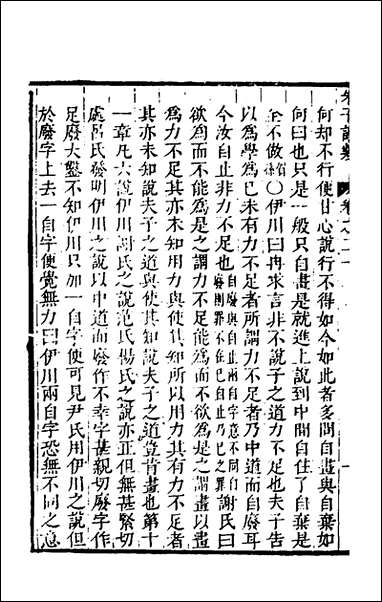 何却不行便甘心說行不得如今如此者多問自畫與自棄如
何曰也只是一般只自畫是就進上說到中間自住了自棄是
全不做賀孫〇伊川曰冉求言非不說子之道力不足也夫子告
以為學為已未有力不足者所謂力不足者乃中道而自廢耳
今汝自止非力不足也自廢與自止兩自字意不同自廢則罪不在已自止乃已之罪謝氏曰
欲為而不能為是之謂力不足能為而不欲為是之謂畫以畫
為力不足其亦未知用力與使其知所以用力其有力不足者
其亦未知說夫子之道與使其知說夫子之道豈肯畫也第十
一章凡六說伊川謝氏之說范氏楊氏之說亦正但無甚緊切
處呂氏發明伊川之說以中道而廢作不幸字甚親切廢字作
足廢大鑿不知伊川只加一自字便可見尹氏用伊川之說但
於廢字上去一自字便覺無力曰伊川兩自字恐無不同之意